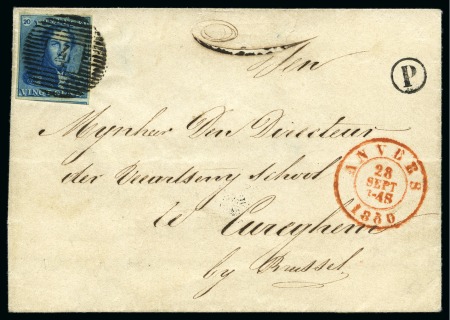 20
VINGT
P
Den
Mynheer Den Directeur
der Veeartseny school
te Cureghem
by Brussel
ANVERS
28
SEPT
1850